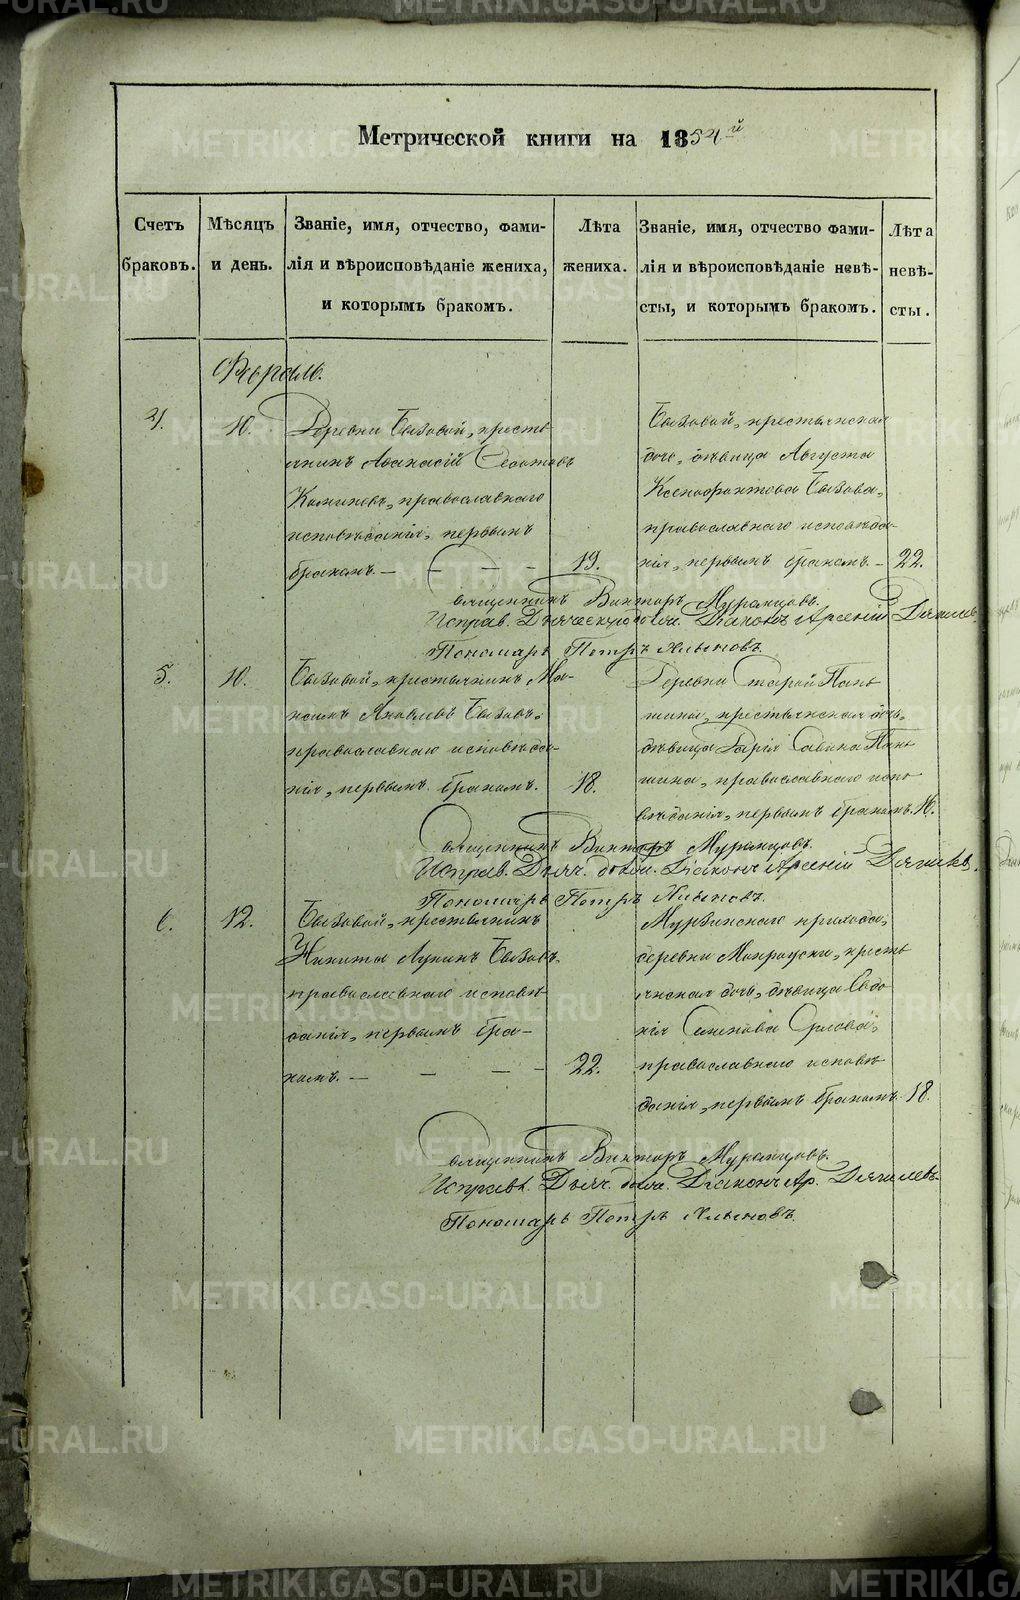 Метрической книги на 1854й
Счетъ браковъ.
Мѣсяцъ и день.
Званіе, имя, отчество, фамилія и вѣроисповѣданіе жениха, и которымъ бракомъ.
Лѣта жениха.
Званіе, имя, отчество фамилія и вѣроисповѣданіе невѣсты, и которымъ бракомъ.
Лѣта невѣсты.
Февраль.
4.
10.
Деревни Бызовой, кресть
янинъ Аѳанасій
православнаго
исповѣданія, первымъ
бракомъ. —
19.
Бызовой, крестьянская
дочь, дѣвица Августа
Ксенофонтова Бызова,
православнаго исповѣда-
нія, первымъ бракомъ. —
22.
Священникъ Викторъ Мурзинцовъ.
Исправ. Дьяческую долж. Діаконъ Арсеній Дягилевъ.
Пономарь Петръ Хлыновъ.
5.
10.
Бызовой, крестьянинъ Мак-
симъ Яковлевъ Бызовъ,
православнаго исповѣда-
нія, первымъ бракомъ.
18.
Деревни Старой Пань
шиной, крестьянская дочь,
дѣвица Дарія Савина Пань
шина, православнаго испо-
вѣданія, первымъ бракомъ.
16.
Священникъ Викторъ Мурзинцовъ.
Исправ. Дьяч. долж. Діаконъ Арсеній Дягилевъ.
Пономарь Петръ Хлыновъ.
6.
12.
Бызовой, крестьянинъ
Никита Лупинъ Бызовъ,
православнаго исповѣ
данія, первымъ бра-
комъ. —
22.
Мурзинскаго прихода,
деревни крестъ
янская дочь, дѣвица Евдо
кія Семенова Орлова,
православнаго исповѣ
данія, первымъ бракомъ.
18.
Священникъ Викторъ Мурзинцовъ.
Исправл. Дьяч. долж. Діаконъ Ар. Дягилевъ.
Пономарь Петръ Хлыновъ.
METRIKI.GASO-URAL.RU